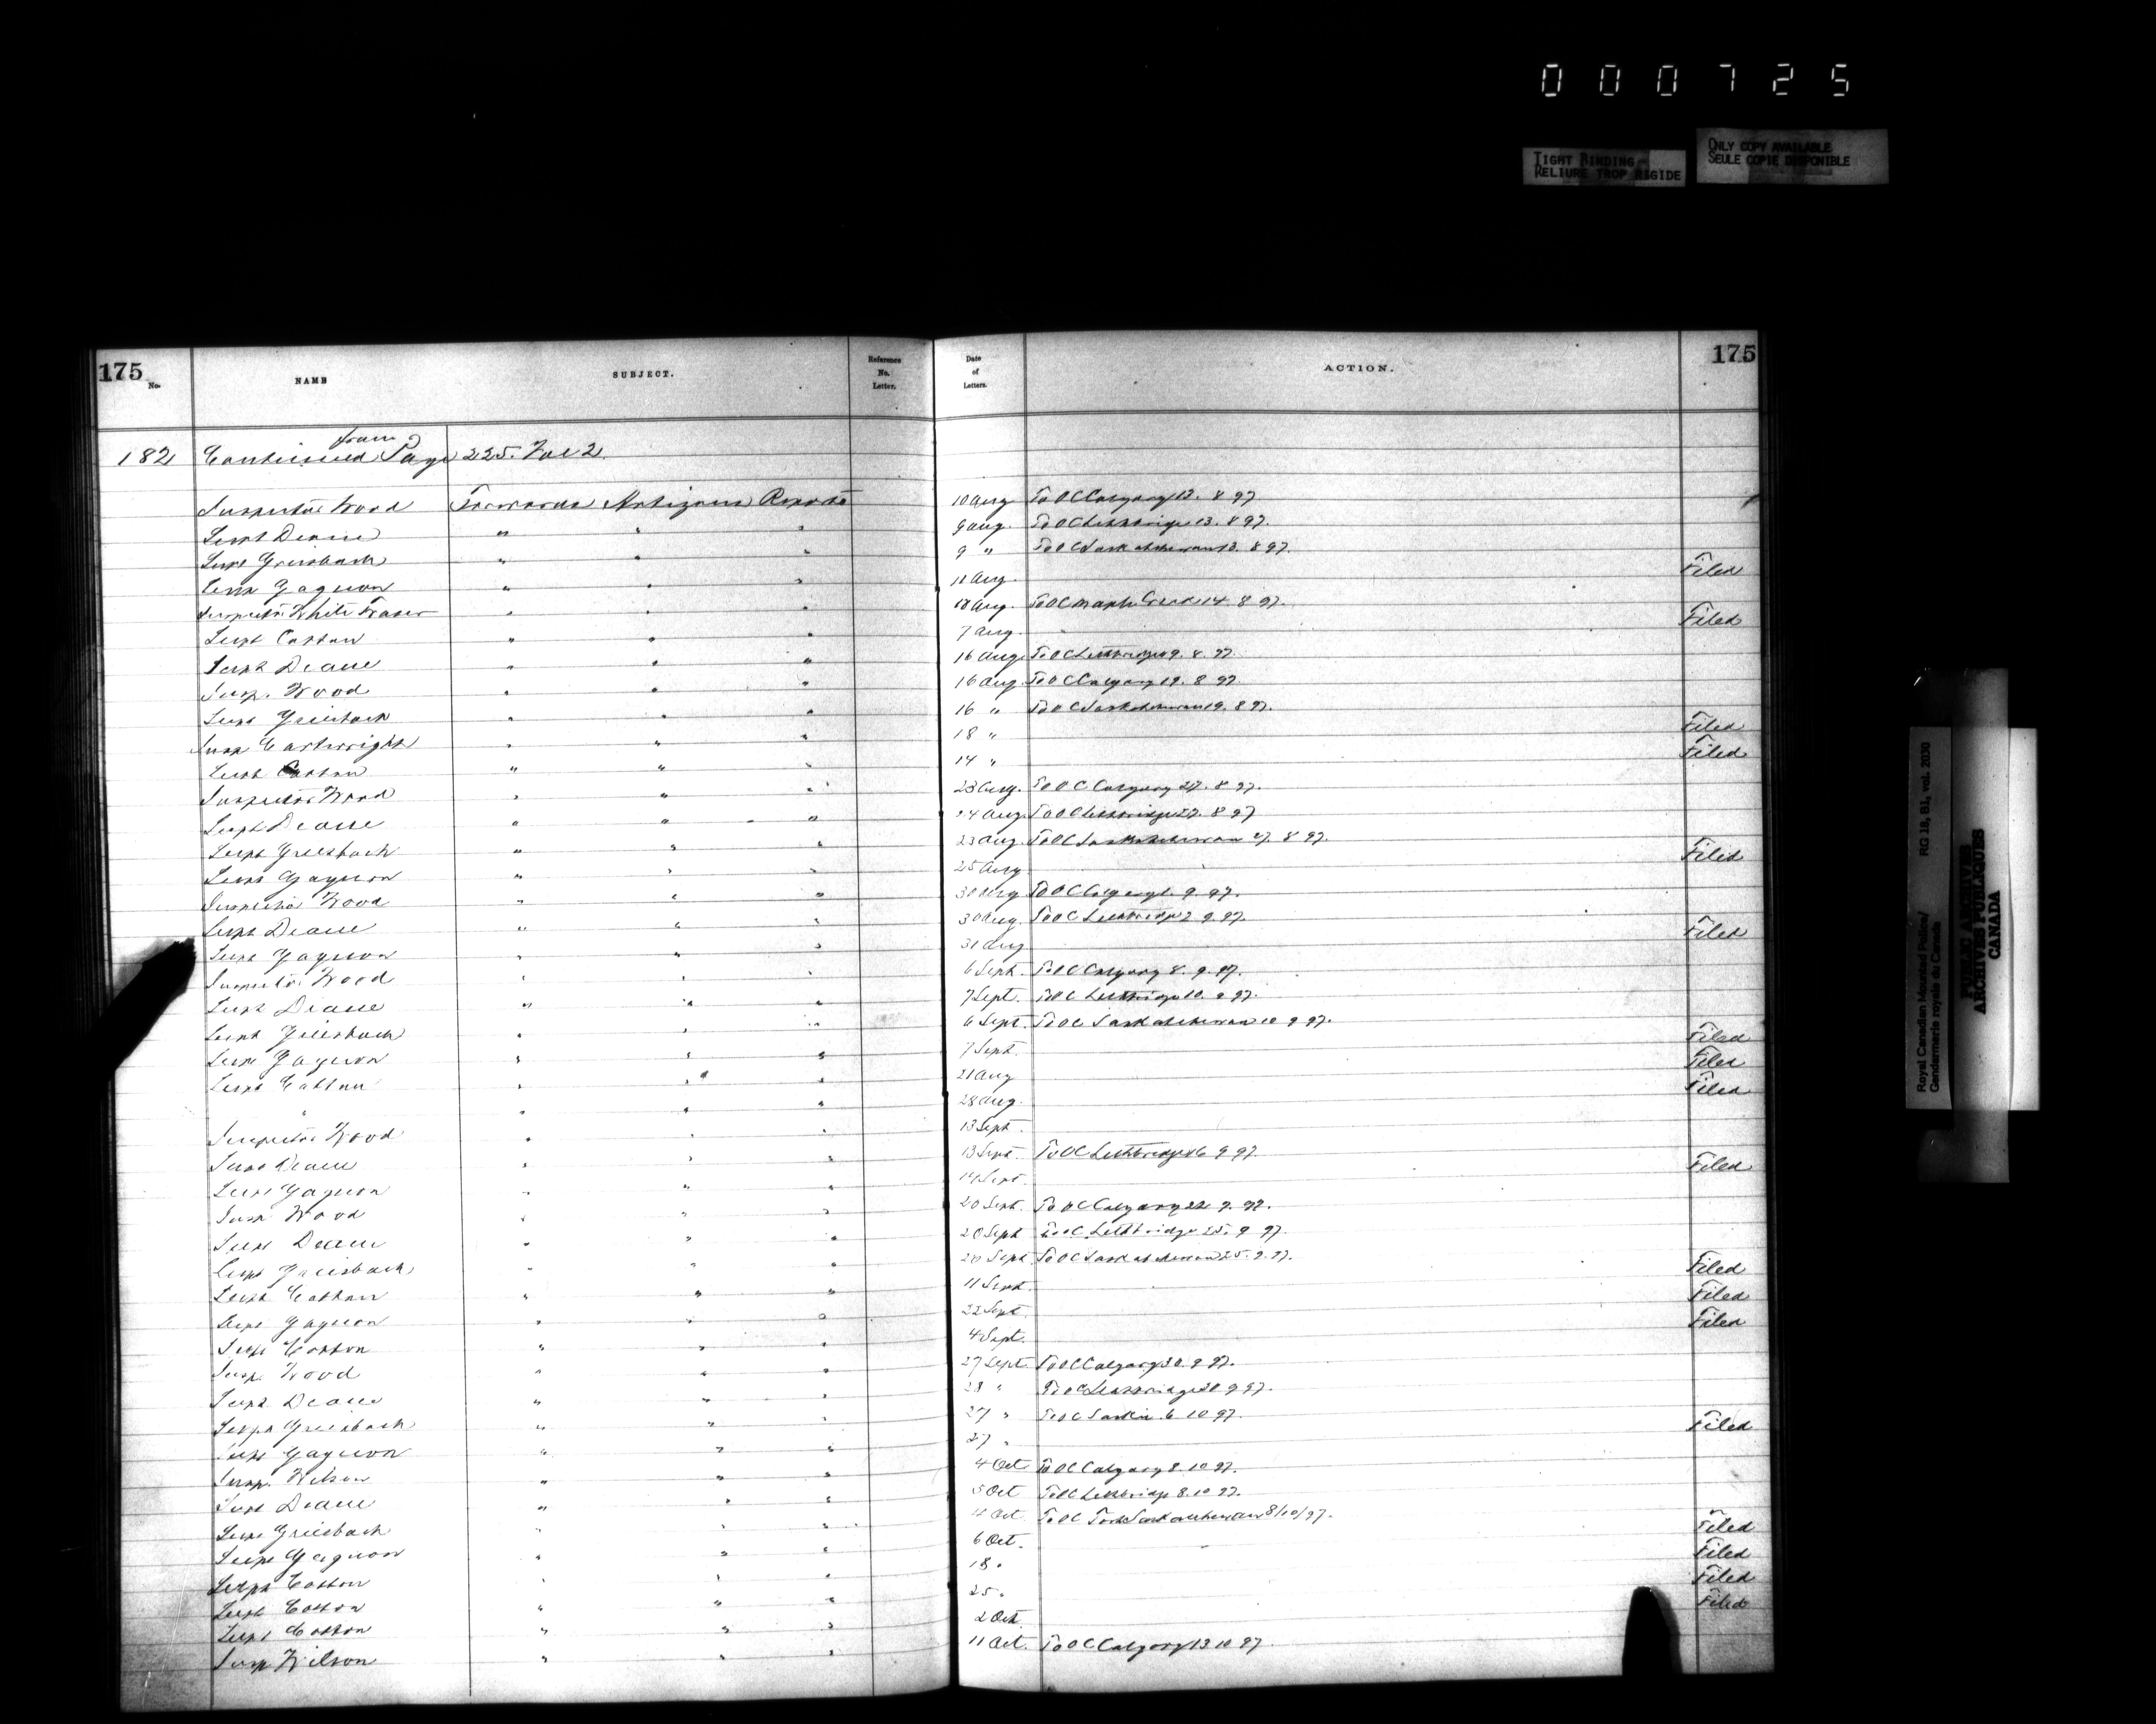 000725
TIGHT BINDING
RELIURE TROP RIGIDE
ONLY COPY AVAILABLE
SEULE COPIE DISPONIBLE
175 No. NAME SUBJECT. Reference No. Letter. Date of Letters. ACTION. 175
182 Continued from Page 225. Vol 2.
Inspector Wood Forwards Artizans Reports 10 Aug To OC Calgary 13. 8 97
Supt Deane " " " 9 Aug. To OC Lethbridge 13. 8 97.
Supt Griesbach " " " 9 " To OC Saskatchewan 13. 8 97.
Supt Gagnon " " " 11 Aug Filed
Inspector White Fraser " " " 10 Aug. To OC Maple Creek 14. 8 97.
Supt Cotton " " " 7 Aug Filed
Supt Deane " " " 16 Aug To OC Lethbridge 19. 8. 97.
Insp. Wood " " " 16 Aug. To OC Calgary 19. 8 97
Supt Griesbach " " " 16 " To OC Saskatchewan 19. 8 97.
Insp Cartwright " " " 18 " Filed
Supt Cotton " " " 14 " Filed
Inspector Wood " " " 23 Aug. To OC Calgary 27. 8 97.
Supt Deane " " " 24 Aug To OC Lethbridge 27. 8 97
Supt Griesbach " " " 23 Aug. To OC Saskatchewan 27. 8 97.
Supt Gagnon " " " 25 Aug Filed
Inspector Wood " " " 30 Aug To OC Calgary 9. 97.
Supt Deane " " " 30 Aug. To OC Lethbridge 2 9 97.
Supt Gagnon " " " 31 Aug Filed
Inspector Wood " " " 6 Sept. To OC Calgary 8. 9. 97.
Supt Deane " " " 7 Sept. To OC Lethbridge 10. 9 97.
Supt Griesbach " " " 6 Sept. To OC Saskatchewan 10 9 97.
Supt Gagnon " " " 7 Sept. Filed
Supt Cotton " " " 21 Aug Filed
" " " " 28 Aug. Filed
Inspector Wood " " " 13 Sept.
Supt Deane " " " 13 Sept. To OC Lethbridge 16 9 97.
Supt Gagnon " " " 14 Sept. Filed
Insp Wood " " " 20 Sept. To OC Calgary 22 9. 97.
Supt Deane " " " 20 Sept To OC Lethbridge 25. 9 97.
Supt Griesbach " " " 20 Sept To OC Saskatchewan 25. 9. 97.
Supt Cotton " " " 11 Sept. Filed
Supt Gagnon " " " 22 Sept. Filed
Supt Cotton " " " 4 Sept. Filed
Insp. Wood " " " 27 Sept To OC Calgary 30. 9 97.
Supt Deane " " " 28 " To OC Lethbridge 30 9 97.
Supt Griesbach " " " 27 " To OC 6 10 97.
Supt Gagnon " " " 27 " Filed
Insp. Wilson " " " 4 Oct To OC Calgary 8. 10 97.
Supt Deane " " " 5 Oct To OC Lethbridge 8. 10 97.
Supt Griesbach " " " 4 Oct To OC Fort Saskatchewan 8/10/97.
Supt Gagnon " " " 6 Oct. Filed
Supt Cotton " " " 18 " Filed
Supt Cotton " " " 25 " Filed
Supt Cotton " " " 2 Oct. Filed
Insp Wilson " " " 11 Oct. To OC Calgary 13 10 97.
Royal Canadian Mounted Police/
Gendarmerie royale du Canada
RG 18, B1, vol. 2030
PUBLIC ARCHIVES
ARCHIVES PUBLIQUES
CANADA